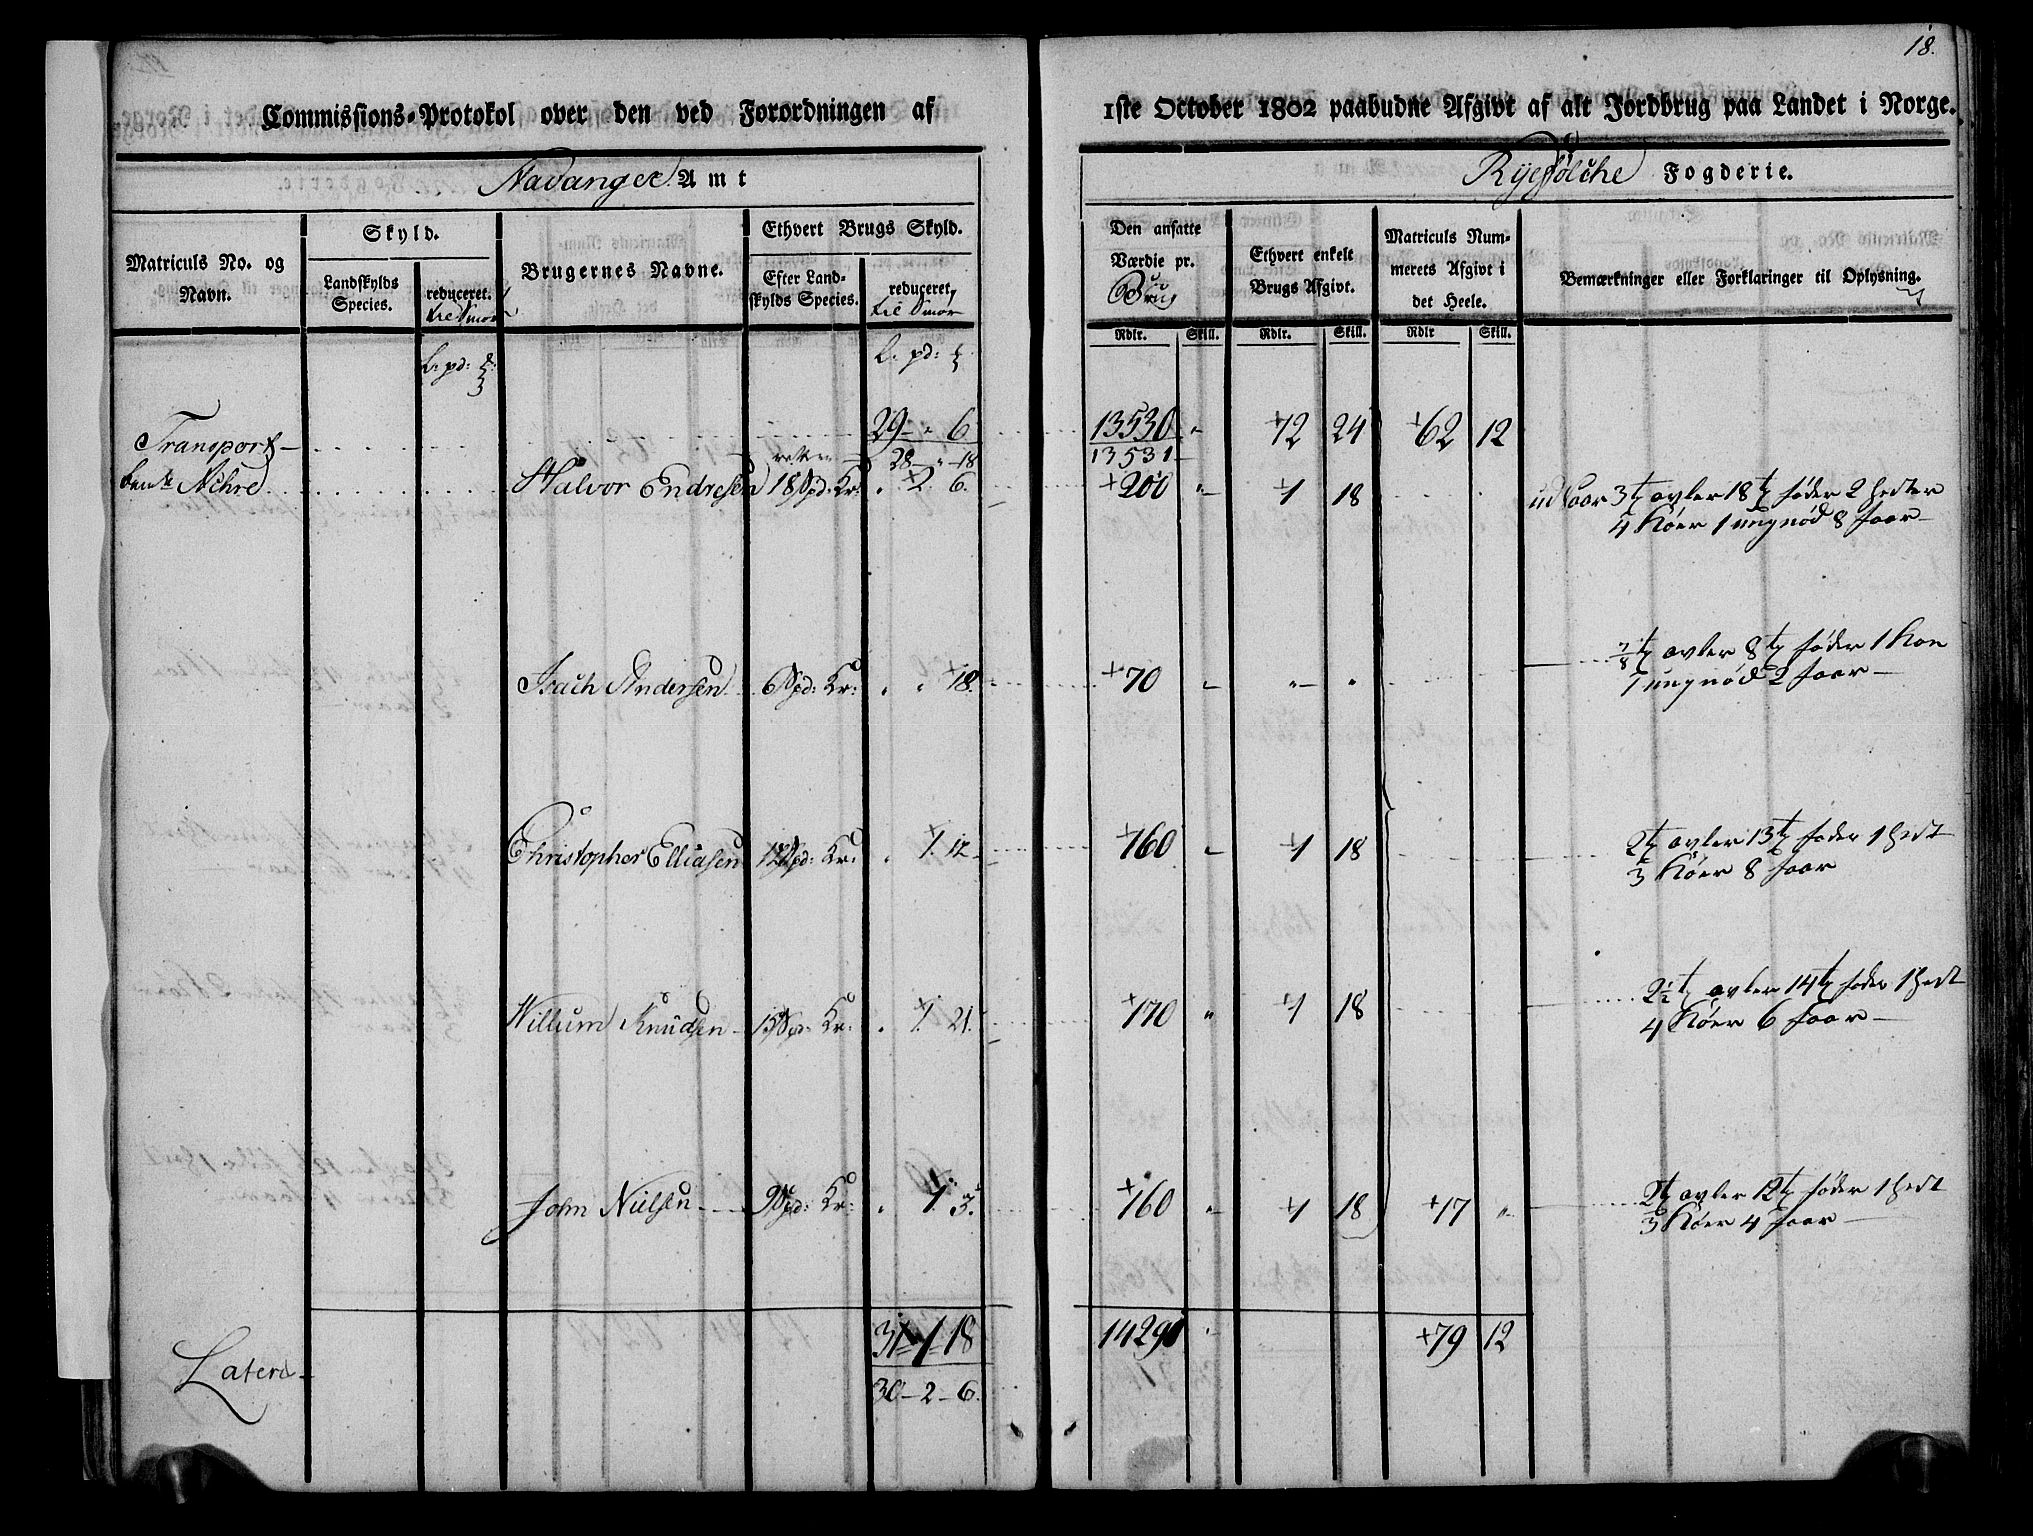 18.
Commissions-Protokol over den ved Forordningen af 1ste October 1802 paabudne Afgivt af alt Jordbrug paa Landet i Norge.
Stavanger Amt
Ryefÿlche Fogderie.
Matriculs No. og Navn.
Skyld.
Landskylds Species.
reduceret.
til Smør
Brugernes Navne.
Ethvert Brugs Skyld.
Efter Landskylds Species.
reduceret,
til Smør
Den ansatte Værdie pr. Brug
Ethvert enkelt Brugs Afgivt.
Matriculs Nummerets Afgivt i det Heele.
Bemærkninger eller Forklaringer til Oplysning.
Rdlr. Skill. Rdlr. Skill. Rdlr Skill.
Transport 29 " 6 13530 " 72 24 62 12
28 " 18 13531
Achre Halvor Endresen 18 Spd: Kr: " 2 6. 200 " 1 18 udsaar 3 t avler 18 t føder 2 Hester
4 Køer 1 ungnød 8 faar
Isach Andersen 6 Spd: Kr: " " 18. 70 " " " 7/8 t avler 8 t føder 1 Koe
1 ungnød 2 faar
Christopher Elliasen 12 Spd: Kr: " 1. 12 160 " 1 18 2 t avler 13 t føder 1 Hest
3 Køer 8 faar
Willum Knudsen 15 Spd: Kr: " 1. 21. 170 " 1 18 2 1/2 t avler 14 t føder 1 Hest
4 Køer 6 faar
John Nielsen 9 Spd: Kr: " 1. 3. 160 " 1 18 17 " 2 t avler 12 t føder 1 Hest
3 Køer 4 faar
Latere 31 1 18 14290 " 79 12
30 - 2 - 6.